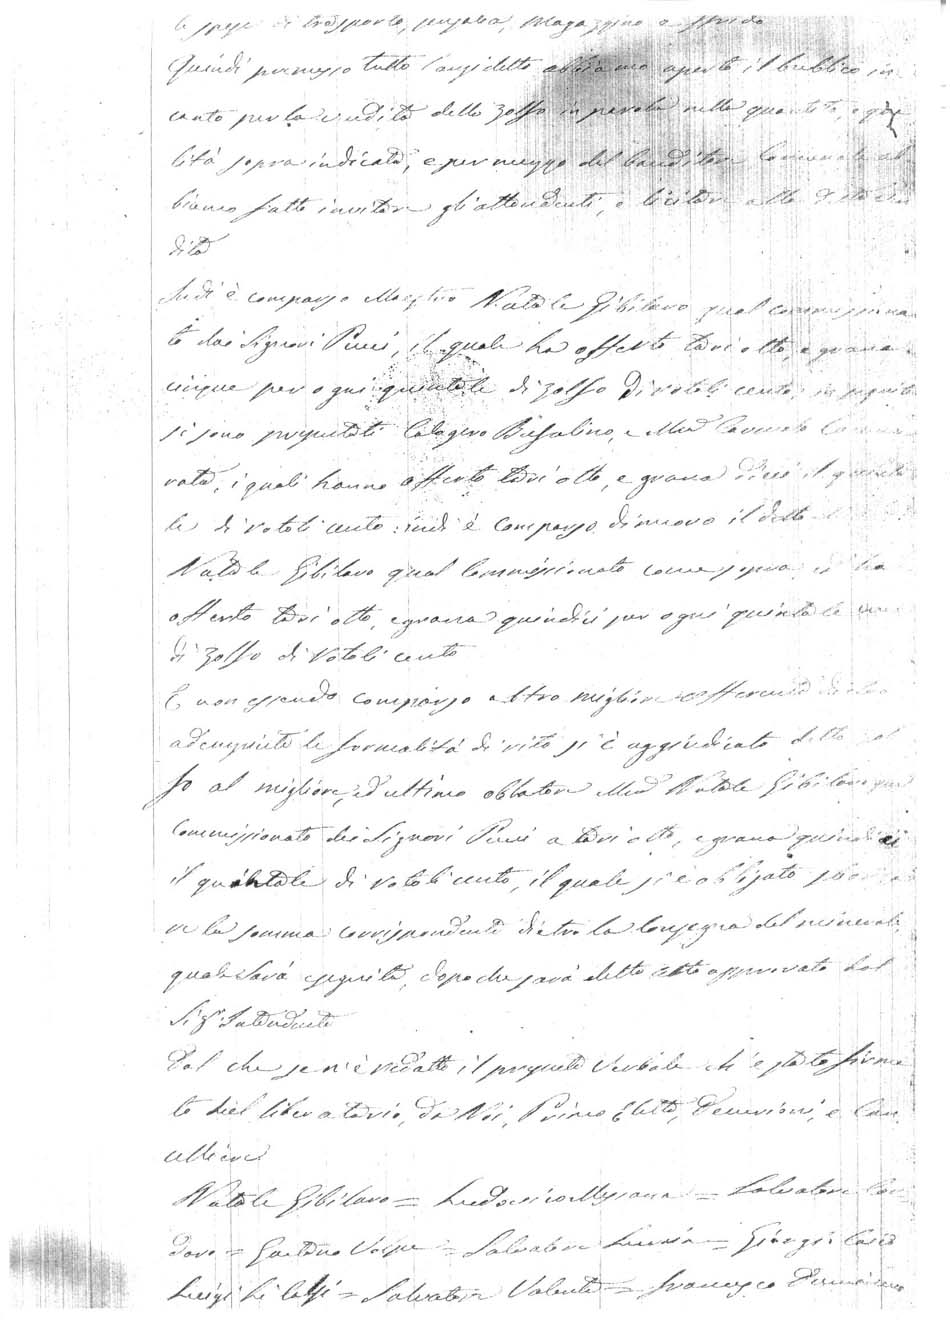 le spese di trasporto, pesatura, magazzino e sfrido
Quindi premesso tutto l'anzidetto abbiamo aperto il pubblico in
canto per la vendita dello zolfo in parola nella quantità, e qua
lità sopra indicata, e per mezzo del banditore Comunale ab
biamo fatto invitare gli attendenti, a licitare alla detta ven
dita
Indi è comparso Maestro Natale Gibilaro qual commissiona
to dai Signori Pucci, il quale ha offerto tarì otto, e grana
cinque per ogni quintale di zolfo di rotoli cento, in seguito
si sono presentati Calogero Bufalino, e M.ro Carmelo
rata, i quali hanno offerto tarì otto, e grana dieci il quinta
le di rotoli cento: indi è comparso di nuovo il detto
Natale Gibilaro qual Commissionato come sopra, ed ha
offerto tarì otto, e grana quindici per ogni quintale
di zolfo di rotoli cento
E non essendo comparso altro migliore offerente dietro
adempiute le formalità di rito si è aggiudicato detto zol
fo al migliore, ed ultimo oblatore M.ro Natale Gibilaro qual
Commissionato dei Signori Pucci a tarì otto, e grana quindici
il quintale di rotoli cento, il quale si è obligato
re la somma corrispondente dietro la consegna del minerale,
qual sarà eseguita, dopo che sarà detto atto approvato dal
Sig.r Intendente
Dal che se n'è redatto il presente Verbale ch'è stato firma
to del liberatario, da Noi, Primo Eletto, Decurioni, e Can
celliere
Natale Gibilaro = Ludovico Messana = Salvatore
= Gaetano Volpe = Salvatore = Giorgi
Luigi = Salvatore Valenti = Francesco